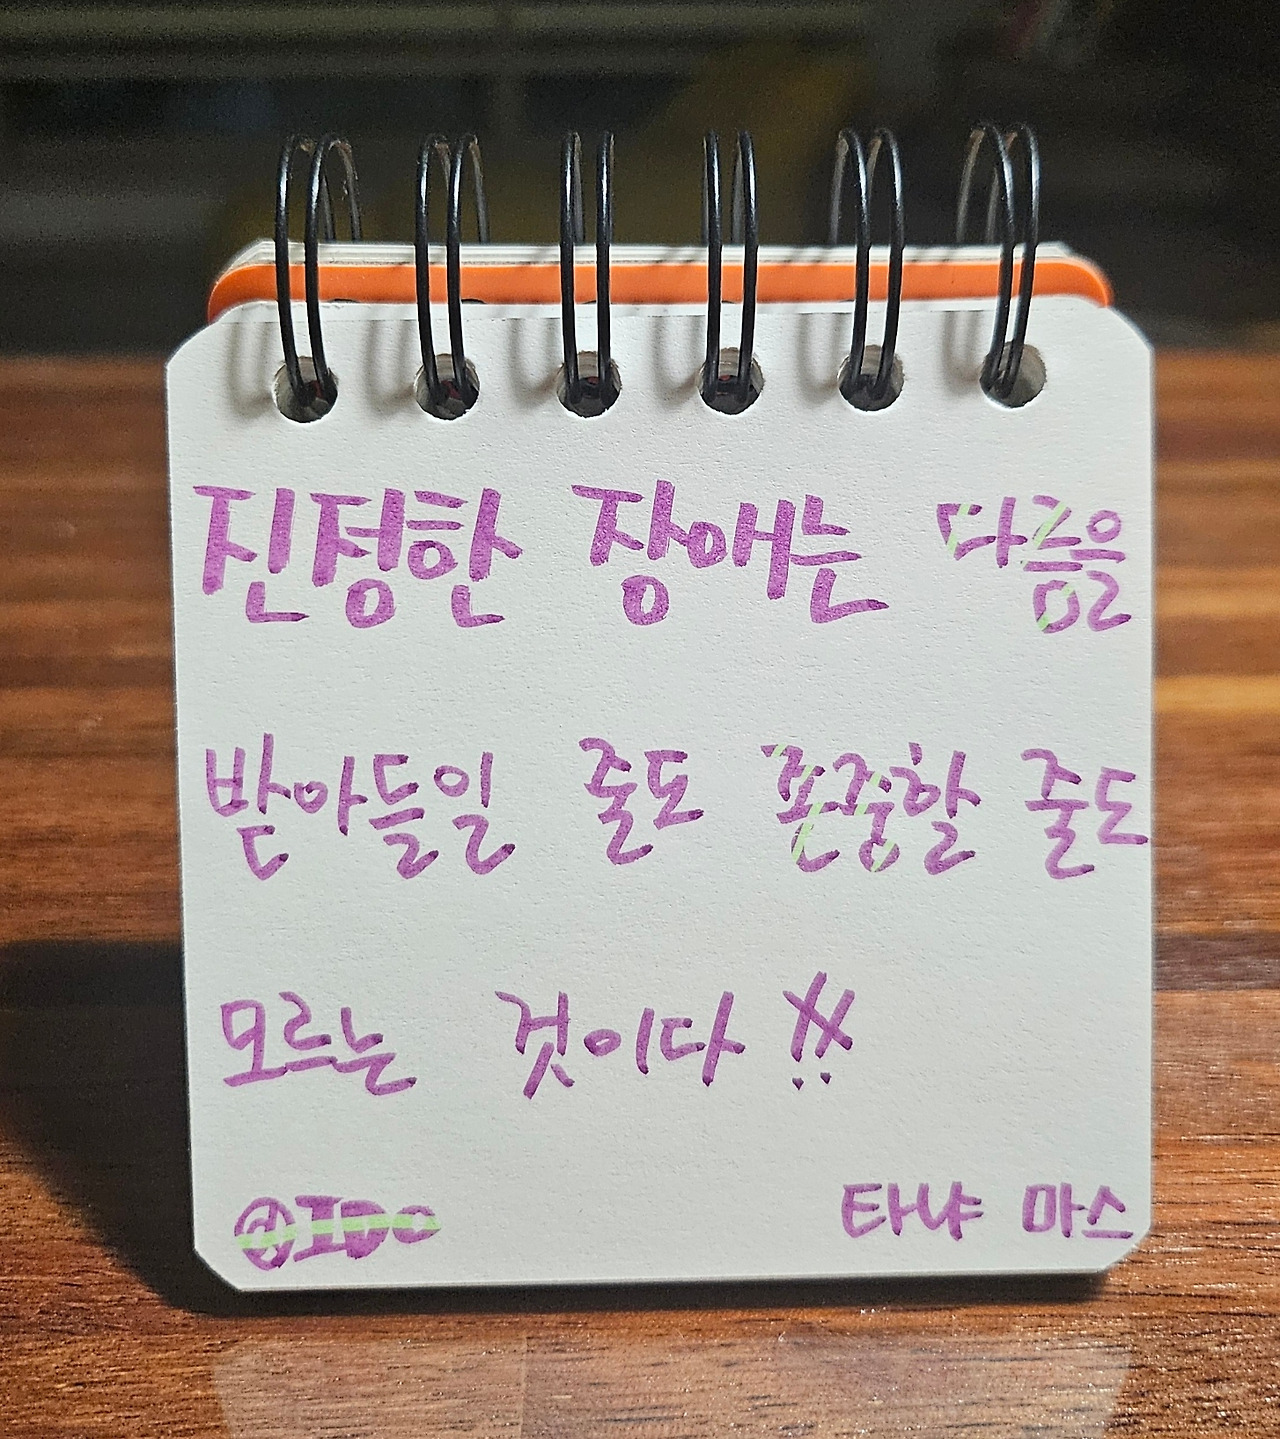 진정한 장애는 다름을
받아들일 줄도 존중할 줄도
모르는 것이다 !!
타냐 마스